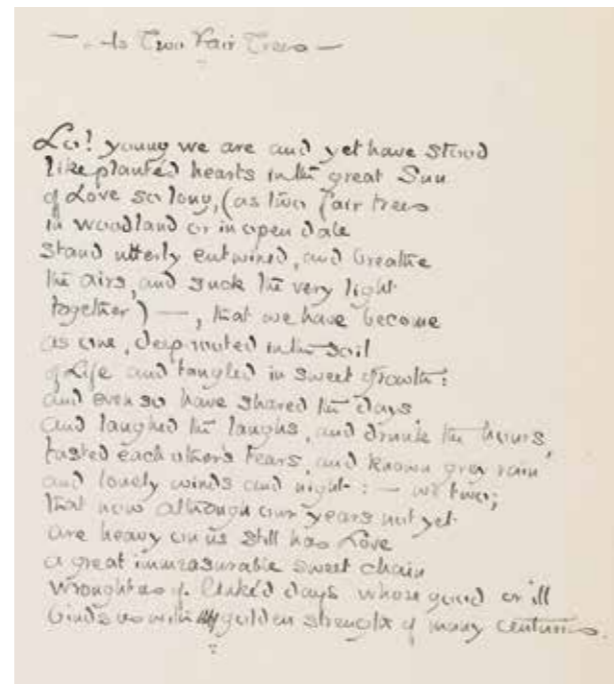 — As Two Fair Trees —
Lo! young we are and yet have stood
like planted hearts in the great Sun
of Love so long, (as two fair trees
in woodland or in open dale
stand utterly entwined, and breathe
the airs, and suck the very light
together) —, that we have become
as one, deep rooted in the soil
of Life and tangled in sweet growth:
and even so have shared the days
and laughed the laughs, and drunk the hours,
tasted each other's tears, and known grey rain
and lonely winds and night: — we two;
that now although our years not yet
are heavy on us still has Love
a great immeasurable sweet chain
Wrought us of linkéd days whose good or ill
binds us with golden strength of many centuries.